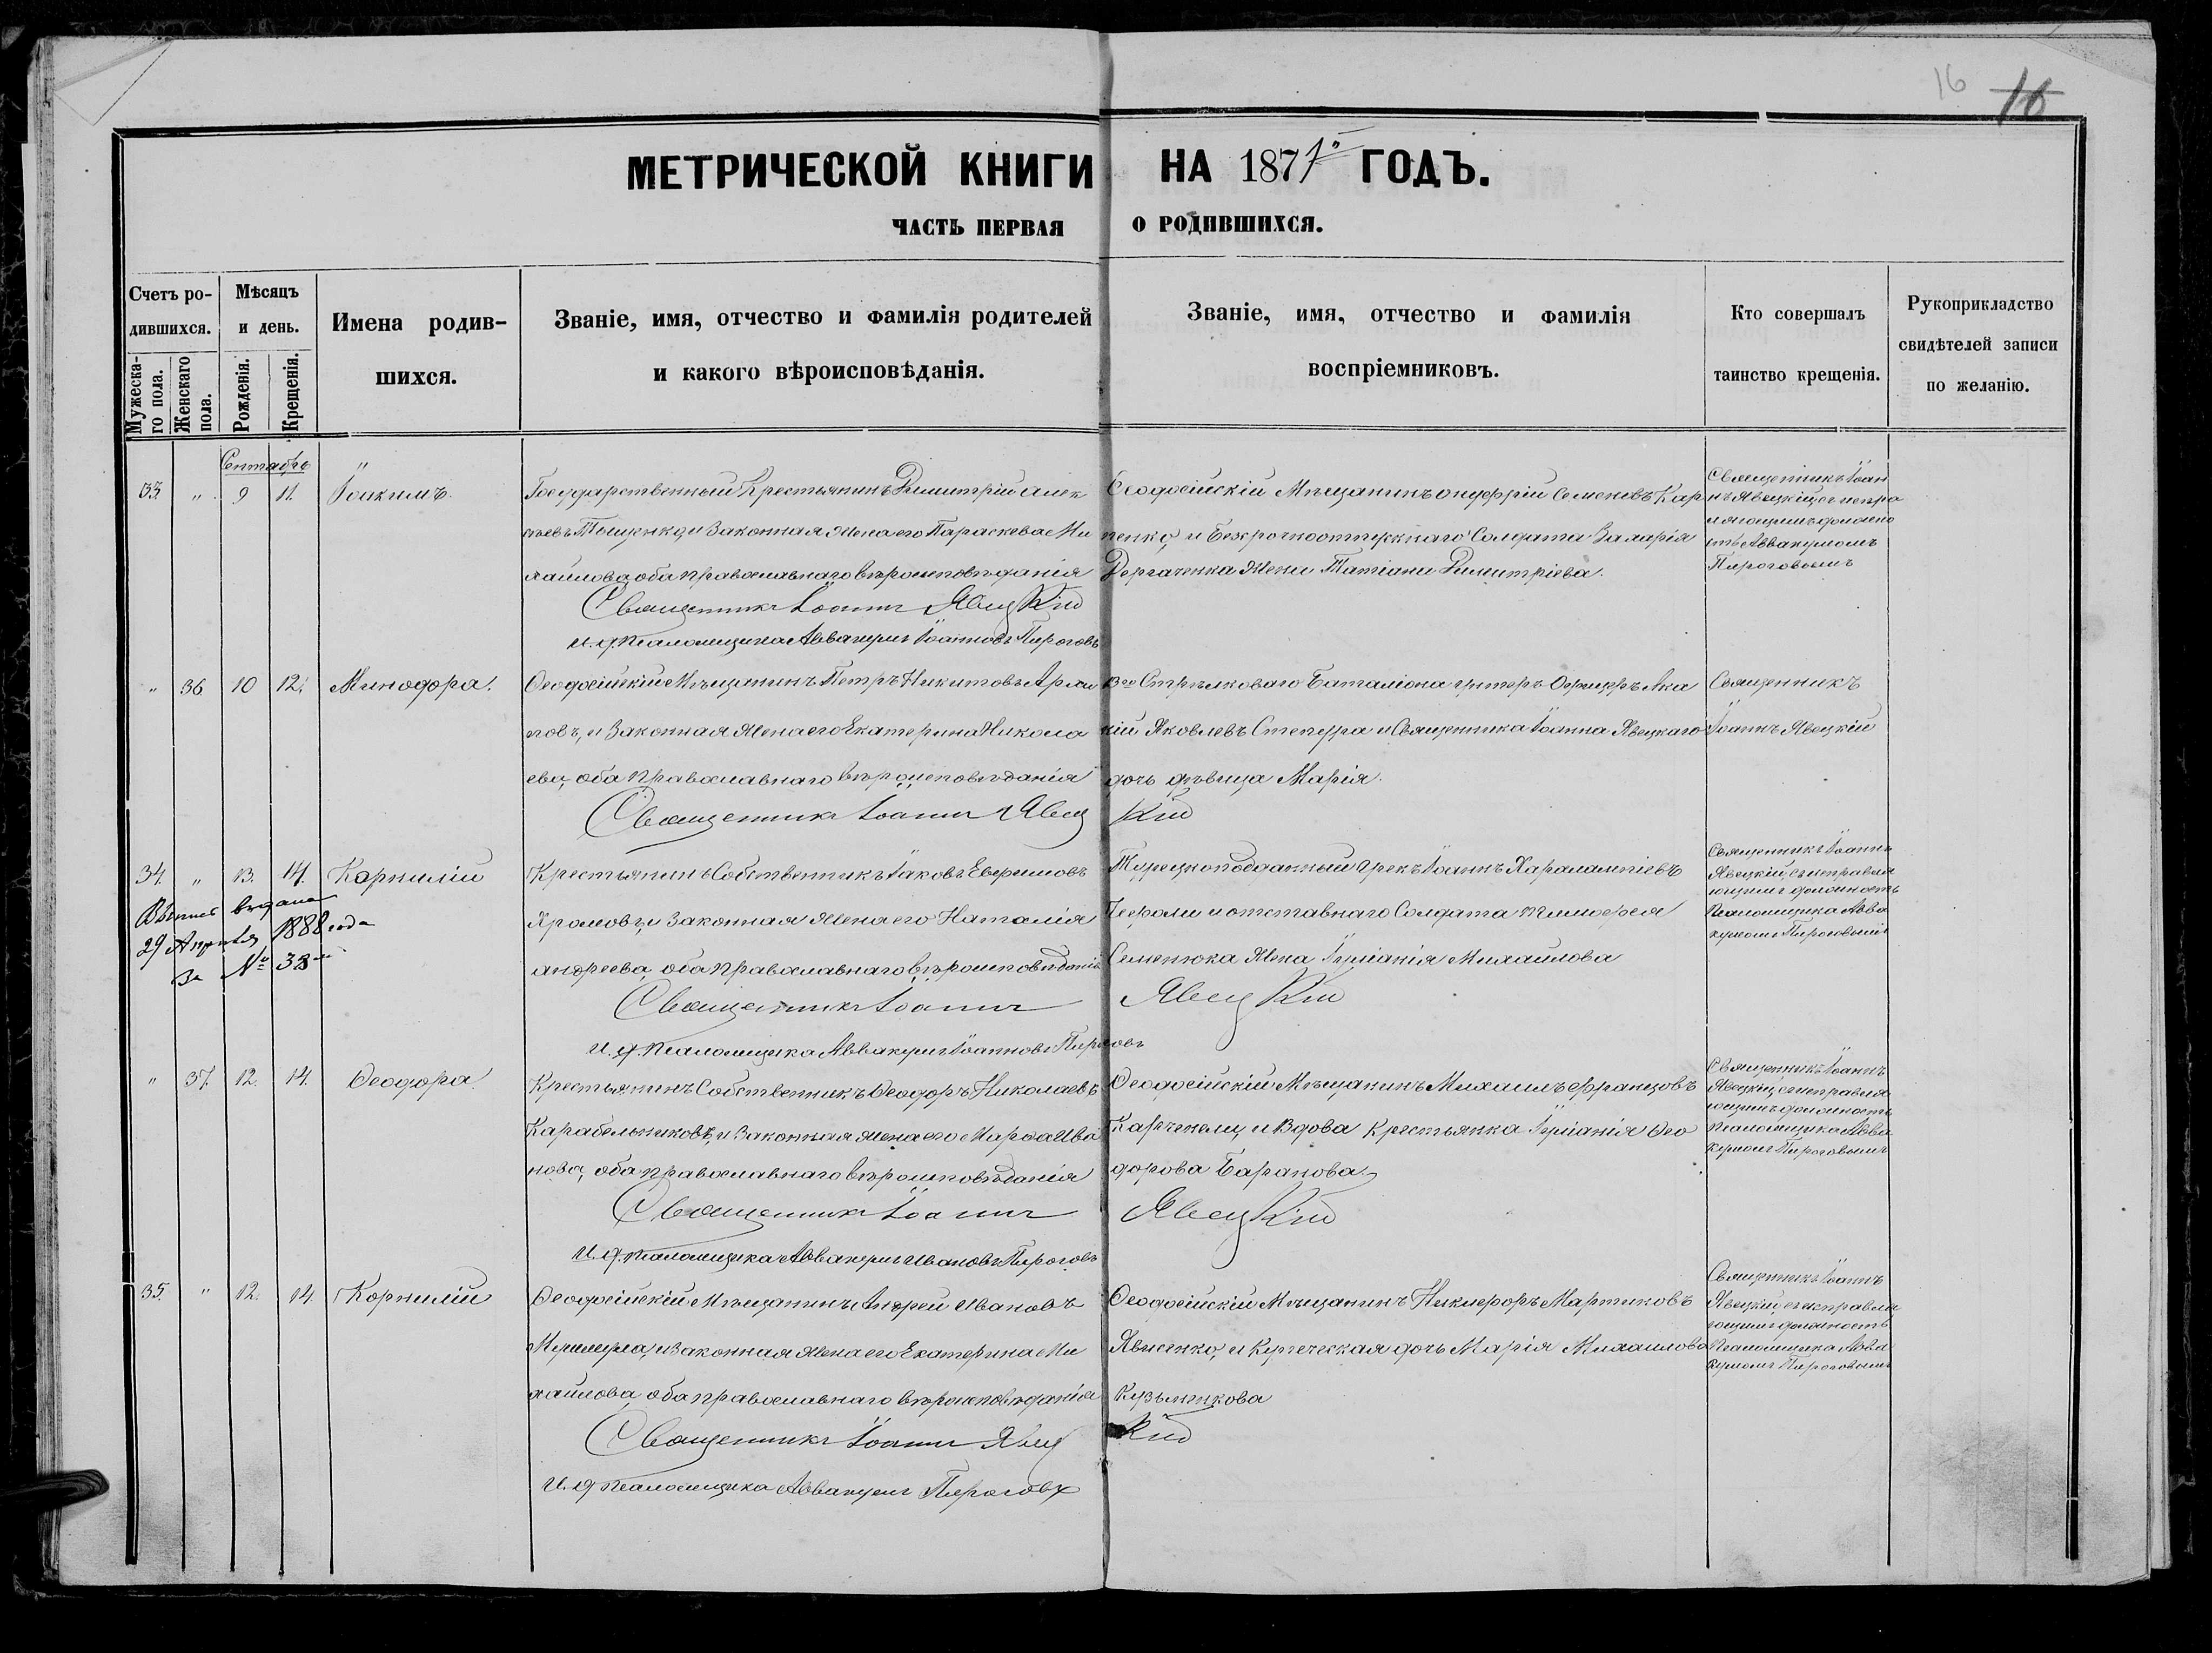 16 16
МЕТРИЧЕСКОЙ КНИГИ НА 1871й ГОДЪ.
ЧАСТЬ ПЕРВАЯ О РОДИВШИХСЯ.
Счетъ ро-
дившихся.
Мужеска-
го пола.
Женскаго
пола.
Мѣсяцъ
и день.
Рожденія.
Крещенія.
Имена родив-
шихся.
Званіе, имя, отчество и фамилія родителей
и какого вѣроисповѣданія.
Званіе, имя, отчество и фамилія
воспріемниковъ.
Кто совершалъ
таинство крещенія.
Рукоприкладство
свидѣтелей записи
по желанію.
Сентябрь
33. " 9 11. Іоакимъ.
Государственный Крестьянинъ Димитрій Алек
сѣевъ Тыщенко, и Законная Жена его Параскева Ми
хайлова, оба православнаго вѣроисповѣданія
Священникъ Іоаннъ Явецкій
и. д. псаломщика Аввакумъ Іоанновъ Пироговъ
Ѳеодосійскій Мѣщанинъ Онуфрій Семеновъ Кар
пенко, и Безсрочноотпускнаго Солдата
Дергаченка Жена Татіана Димитріева.
Священникъ Іоан
нъ Явецкій, съ испра
вляющимъ должно
сть Аввакумомъ
Пироговымъ
" 36 10 12. Минодора.
Ѳеодосійскій Мѣщанинъ Петръ Никитовъ
и Законная Жена его Екатерина Никола
ева, оба православнаго вѣроисповѣданія
Священникъ Іоаннъ Явецкій
13го Стрѣлковаго Баталіона унтеръ Офицеръ Ака
кій Яковлевъ Степура и Священника Іоанна Явецкаго
дочь дѣвица Марія.
Священникъ
Іоаннъ Явецкій
34. " 13. 14. Корнилій
Выпись выдана
29 Апрѣля 1888 года
за № 38
Крестьянинъ Собственникъ Іаковъ Ефимовъ
Хромовъ, и Законная Жена его Наталія
Андреева, оба православнаго вѣроисповѣданія
Священникъ Іоаннъ Явецкій
и. д. псаломщика Аввакумъ Іоанновъ Пироговъ
Турецкоподданный Грекъ Іоаннъ Харалампіевъ
и отставнаго Солдата Тимофея
Семенюка Жена Іуліанія Михайлова
Священникъ Іоаннъ
Явецкій, съ исправля
ющимъ должность
Псаломщика Авва
кумомъ Пироговымъ
" 37. 12. 14. Ѳеодора.
Крестьянинъ Собственникъ Ѳеодоръ Николаевъ
Карабельниковъ, и Законная жена его Марѳа Ива
нова, оба православнаго вѣроисповѣданія
Священникъ Іоаннъ Явецкій
и. д. псаломщика Аввакумъ Ивановъ Пироговъ
Ѳеодосійскій Мѣщанинъ Михаилъ Францовъ
и Вдова Крестьянка Іуліанія Ѳео
дорова Баранова.
Священникъ Іоаннъ
Явецкій, съ исправля
ющимъ должность
Псаломщика Авва
кумомъ Пироговымъ
35. " 12. 14. Корнилій
Ѳеодосійскій Мѣщанинъ Андрей Ивановъ
и Законная Жена его Екатерина Ми
хайлова, оба православнаго вѣроисповѣданія
Священникъ Іоаннъ Явецкій
и. д. псаломщика Аввакумъ Пироговъ
Ѳеодосійскій Мѣщанинъ Никифоръ Мартиновъ
Явисенко, и Купеческая дочь Марія Михайлова
Кузьменкова
Священникъ Іоаннъ
Явецкій, съ исправля
ющимъ должность
Псаломщика Авва
кумомъ Пироговымъ